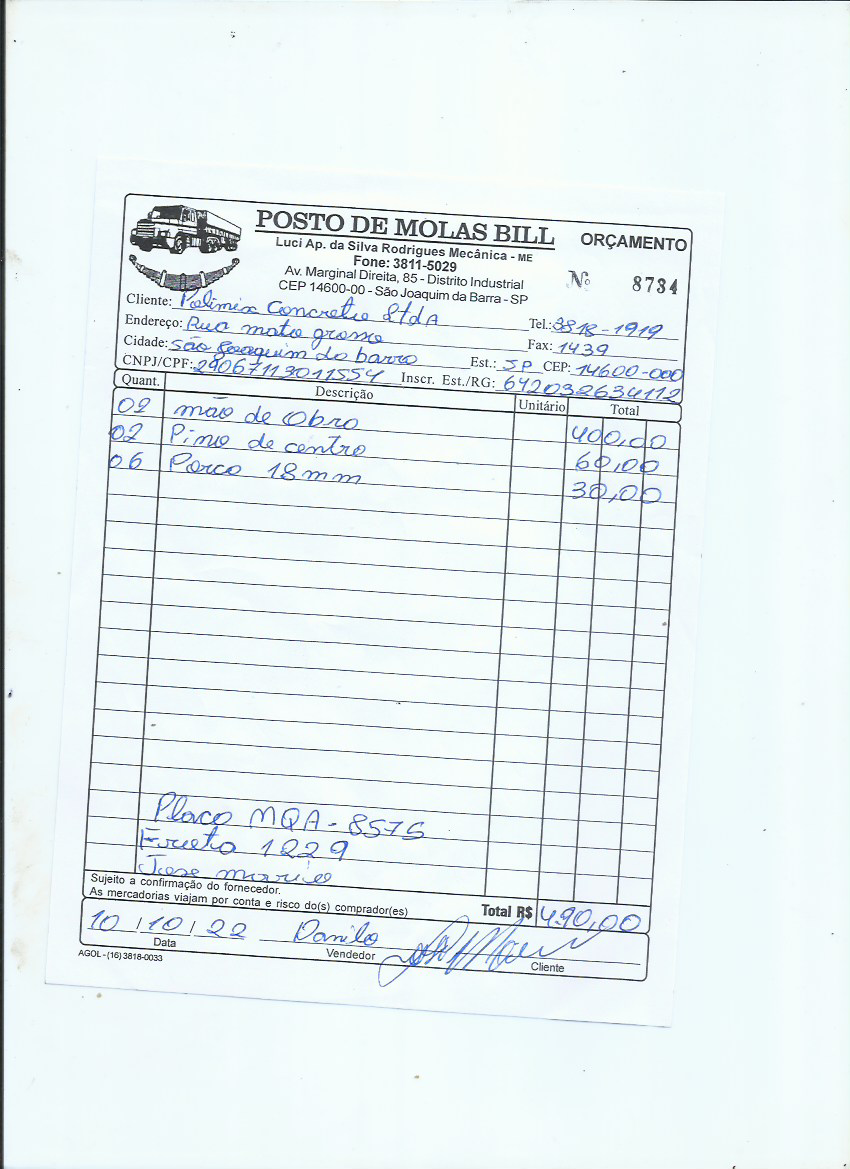 POSTO DE MOLAS BILL
ORÇAMENTO
Luci Ap. da Silva Rodrigues Mecânica - ME
Fone: 3811-5029
Av. Marginal Direita, 85 - Distrito Industrial
CEP 14600-00 - São Joaquim da Barra - SP
Nº 8734
Cliente: Polimix Concreto LtdA Tel.: 3818-1919
Endereço: Rua mato grosso Fax: 1439
Cidade: São Joaquim da barra Est.: SP CEP: 14600-000
CNPJ/CPF: 29067113011554 Inscr. Est./RG: 642032634112
Quant. Descrição Unitário Total
02 mão de Obra 400,00
02 Pino de centro 60,00
06 Porca 18mm 30,00
Placa MQA-8575
Frota 1229
Jose maria
Sujeito a confirmação do fornecedor.
As mercadorias viajam por conta e risco do(s) comprador(es)
Total R$ 490,00
10/10/22 Danilo
Data Vendedor Cliente
AGOL - (16) 3818-0033